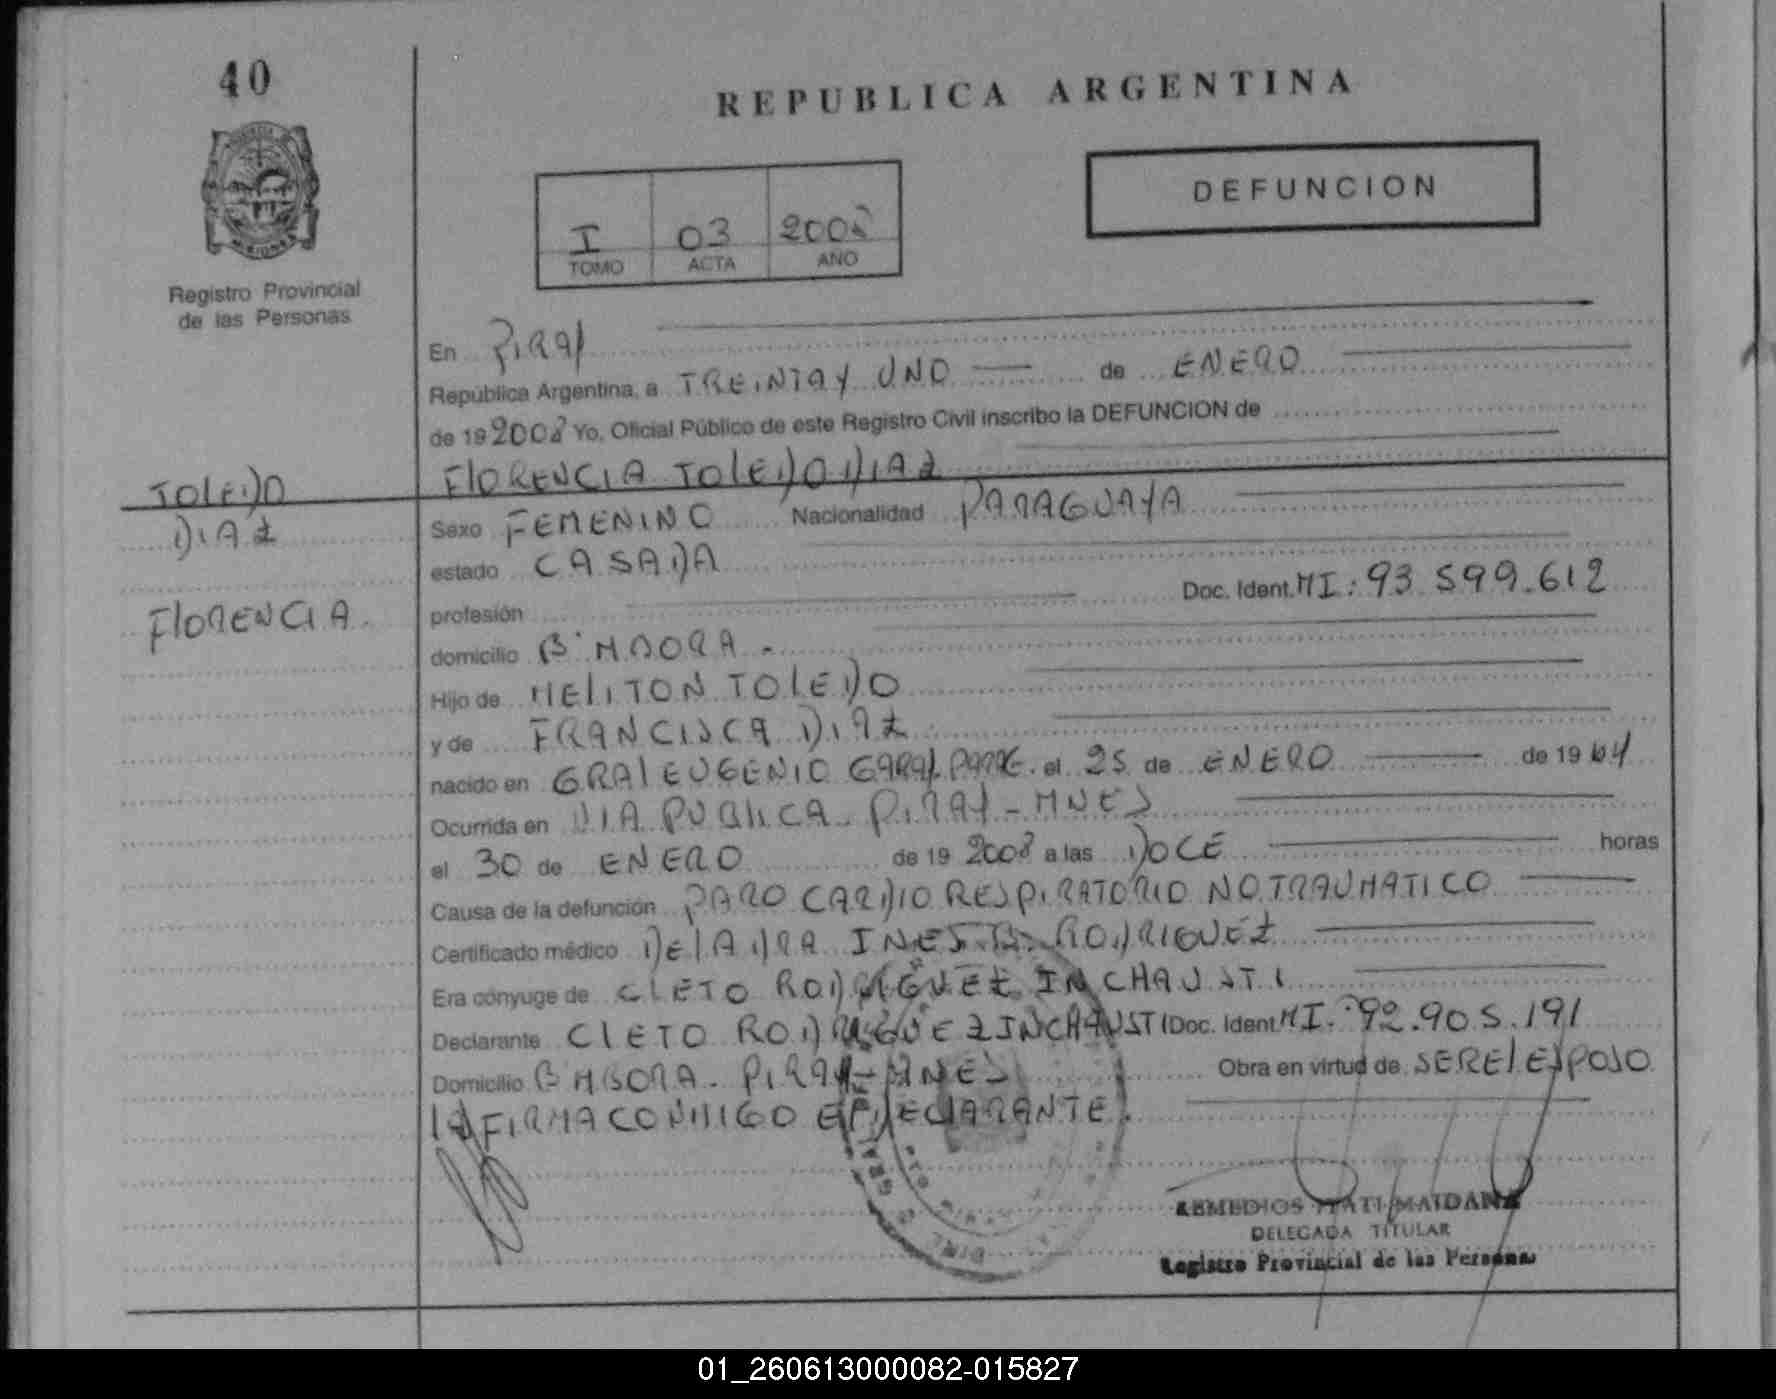 40
REPUBLICA ARGENTINA
DEFUNCION
I 03 2008
TOMO ACTA AÑO
Registro Provincial
de las Personas
En PIRAY
República Argentina, a TREINTA Y UNO de ENERO
de 19 2008 Yo, Oficial Público de este Registro Civil inscribo la DEFUNCION de
FLORENCIA TOLEDO DIAZ
TOLEDO
DIAZ
FLORENCIA.
Sexo FEMENINO Nacionalidad PARAGUAYA
estado CASADA
profesión Doc. Ident. MI: 93.599.612
domicilio
Hijo de MELITON TOLEDO
y de FRANCISCA DIAZ
nacido en GRAL EUGENIO GARAY el 25 de ENERO de 19 64
Ocurrida en VIA PUBLICA - PIRAY - MNES
el 30 de ENERO de 19 2008 a las DOCE horas
Causa de la defunción PARO CARDIO RESPIRATORIO NO TRAUMATICO
Certificado médico DE LA DRA INES RODRIGUEZ
Era cónyuge de CLETO RODRIGUEZ INCHAUSTI
Declarante CLETO RODRIGUEZ INCHAUSTI Doc. Ident. MI: 92.905.191
Domicilio PIRAY - MNES Obra en virtud de SER EL ESPOSO
FIRMA CONMIGO EL DECLARANTE.
REMEDIOS ITATI MAIDANA
DELEGADA TITULAR
Registro Provincial de las Personas
01_260613000082-015827